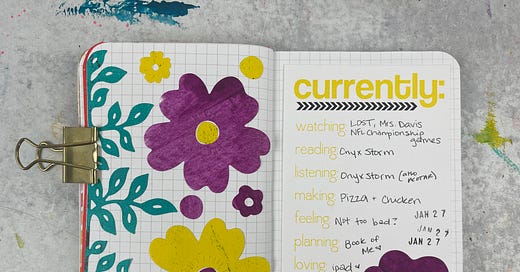 currently:
watching LOST, Mrs. Davis
NFL Championship
games
reading Onyx Storm
listening Onyx Storm (also
making Pizza + Chicken
feeling Not too bad? JAN 27
JAN 27
planning Book of JAN 27
Me
loving ipad